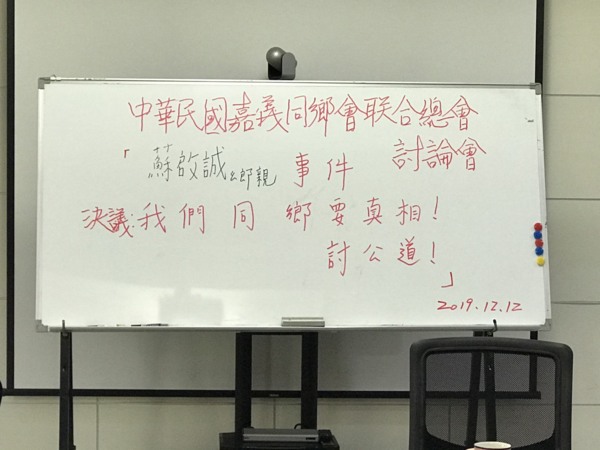 中華民國嘉義同鄉會联合總會
「蘇啟誠鄉親事件 討論會
決議:我們同鄉要真相!
討公道!
」
2019.12.12